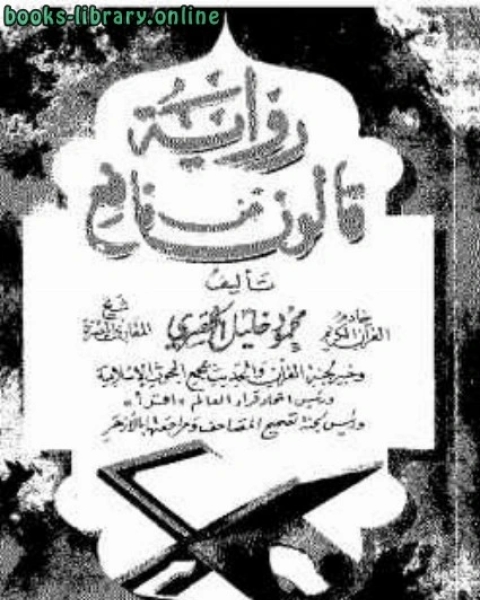 books-library.online
رواية
قالون عن نافع
تأليف
خادم القرآن الكريم محمود خليل الحصري شيخ المقارئ المصرية
وخبير لجنة القرآن والحديث بمجمع البحوث الإسلامية
ورئيس اتحاد قراء العالم « اقرأ »
ورئيس لجنة تصحيح المصاحف ومراجعتها بالأزهر